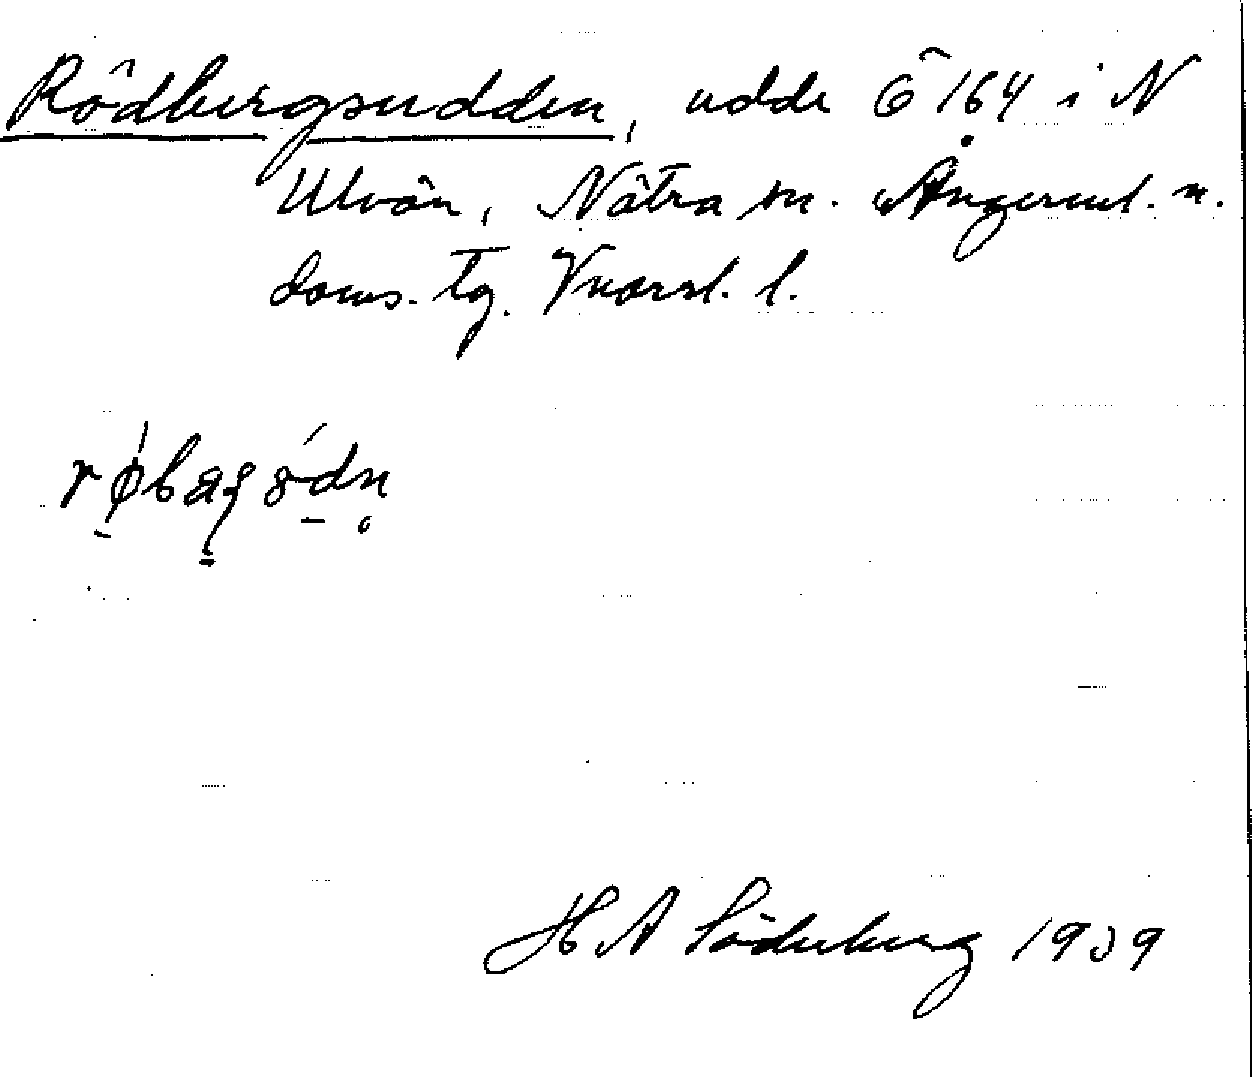 Rödbergsudden, udde Ö 164 i N
Ulvön, Nätra sn. Ångerml. n.
doms. tg. Vnorrl. l.
H A Söderberg 1939